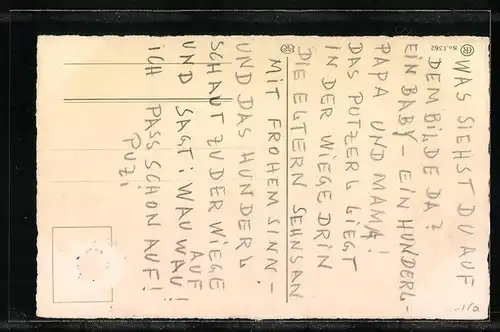 WAS SIEHST DU AUF
DEM BILDE DA?
EIN BABY - EIN HUNDERL -
PAPA UND MAMA!
DAS PUTZERL LIEGT
IN DER WIEGE DRIN
DIE ELTERN SEHNS AN
MIT FROHEM SINN -
UND DAS HUNDERL
SCHAUT ZU DER WIEGE
AUF
UND SAGT: WAU WAU!
ICH PASS SCHON AUF!
PUZI
No. 1362